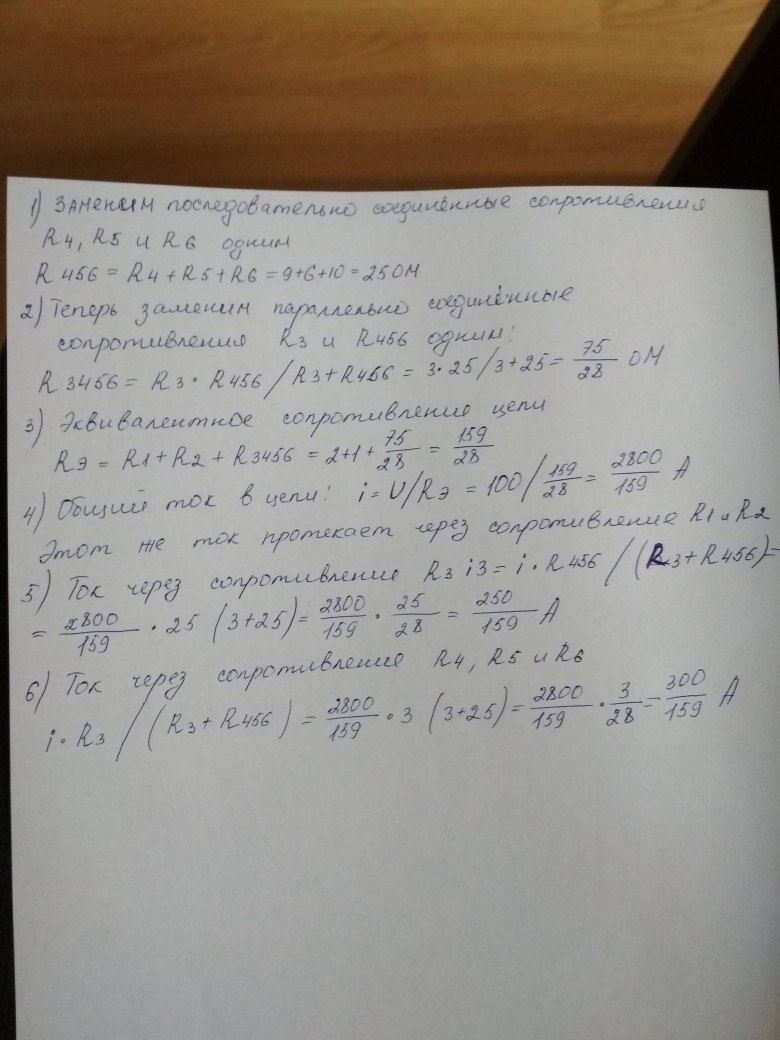 1) Заменим последовательно соединённые сопротивления
R4, R5 и R6 одним
R 456 = R4 + R5 + R6 = 9+6+10 = 25 Ом
2) Теперь заменим параллельно соединённые
сопротивления R3 и R456 одним:
R 3456 = R3 • R456 / R3 + R456 = 3•25/3+25 = 75/28 Ом
3) Эквивалентное сопротивление цепи
Rэ = R1 + R2 + R3456 = 2+1+ 75/28 = 159/28
4) Общий ток в цепи: i = U/Rэ = 100 / 159/28 = 2800/159 А
Этот же ток протекает через сопротивление R1 и R2
5) Ток через сопротивление R3 i3 = i • R456 / (R3 + R456) =
= 2800/159 • 25 (3+25) = 2800/159 • 25/28 = 250/159 А
6) Ток через сопротивления R4, R5 и R6
i • R3 / (R3 + R456) = 2800/159 • 3 (3+25) = 2800/159 • 3/28 = 300/159 А